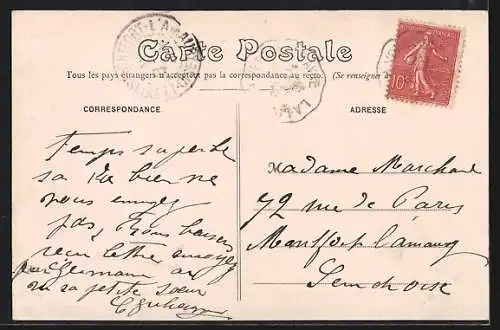 Carte Postale
Tous les pays étrangers n'acceptent pas la correspondance au recto. (Se renseigner à
CORRESPONDANCE
ADRESSE
10c
Temps superbe
sa va bien ne
vous ennuyez
pas, Bons baisers
reçu lettre envoyée
par Germaine
sa petite sœur
Madame Marchand
72 rue de Paris
Montfort l'amaury
Seine et oise